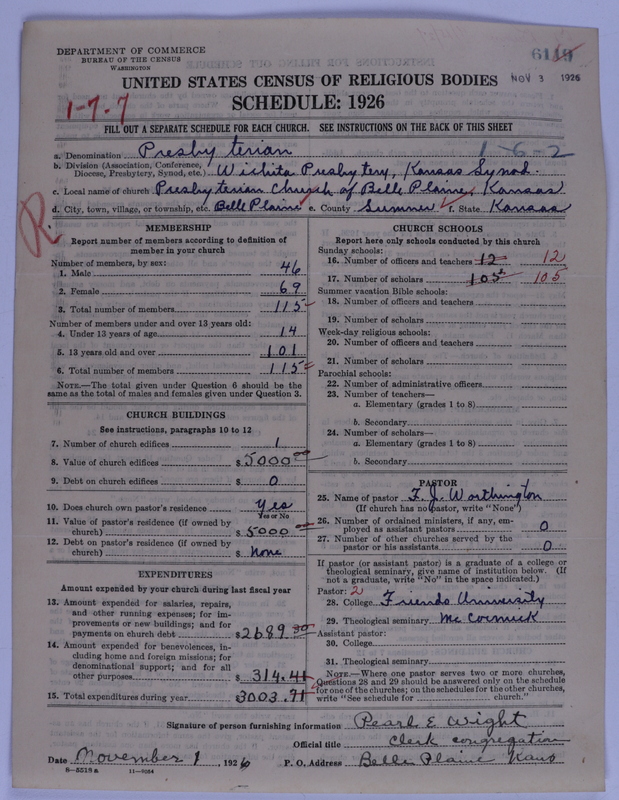 DEPARTMENT OF COMMERCE
BUREAU OF THE CENSUS
WASHINGTON
6119
NOV 3 1926
UNITED STATES CENSUS OF RELIGIOUS BODIES
SCHEDULE: 1926
1-7-7
FILL OUT A SEPARATE SCHEDULE FOR EACH CHURCH. SEE INSTRUCTIONS ON THE BACK OF THIS SHEET
1-6-2
a. Denomination Presbyterian
b. Division (Association, Conference, Diocese, Presbytery, Synod, etc.) Wichita Presbytery, Kansas Synod.
c. Local name of church Presbyterian Church of Belle Plaine, Kansas
d. City, town, village, or township, etc. Belle Plaine e. County Sumner f. State Kansas
R
MEMBERSHIP
Report number of members according to definition of
member in your church
Number of members, by sex:
1. Male 46
2. Female 69
3. Total number of members 115
Number of members under and over 13 years old:
4. Under 13 years of age 14
5. 13 years old and over 101
6. Total number of members 115
NOTE.—The total given under Question 6 should be the
same as the total of males and females given under Question 3.
CHURCH BUILDINGS
See instructions, paragraphs 10 to 12
7. Number of church edifices 1
8. Value of church edifices $5000.00
9. Debt on church edifices $ 0
10. Does church own pastor's residence Yes
Yes or No
11. Value of pastor's residence (if owned by
church) $5000
12. Debt on pastor's residence (if owned by
church) $ None
EXPENDITURES
Amount expended by your church during last fiscal year
13. Amount expended for salaries, repairs,
and other running expenses; for im-
provements or new buildings; and for
payments on church debt $2689.30
14. Amount expended for benevolences, in-
cluding home and foreign missions; for
denominational support; and for all
other purposes $ 314.41
15. Total expenditures during year $3003.71
CHURCH SCHOOLS
Report here only schools conducted by this church
Sunday schools:
16. Number of officers and teachers 12 12
17. Number of scholars 105 105
Summer vacation Bible schools:
18. Number of officers and teachers
19. Number of scholars
Week-day religious schools:
20. Number of officers and teachers
21. Number of scholars
Parochial schools:
22. Number of administrative officers
23. Number of teachers—
a. Elementary (grades 1 to 8)
b. Secondary
24. Number of scholars—
a. Elementary (grades 1 to 8)
b. Secondary
PASTOR
25. Name of pastor F. J. Worthington
(If church has no pastor, write "None")
26. Number of ordained ministers, if any, em-
ployed as assistant pastors 0
27. Number of other churches served by the
pastor or his assistants 0
If pastor (or assistant pastor) is a graduate of a college or
theological seminary, give name of institution below. (If
not a graduate, write "No" in the space indicated.)
Pastor: 2
28. College Friends University
29. Theological seminary McCormick
Assistant pastor:
30. College
31. Theological seminary
NOTE.—Where one pastor serves two or more churches,
Questions 28 and 29 should be answered only on the schedule
for one of the churches; on the schedules for the other churches,
write "See schedule for church."
Signature of person furnishing information Pearl E Wight
Official title Clerk congregation
Date November 1, 1926 P. O. Address Belle Plaine Kans
8-5518a 11-9064